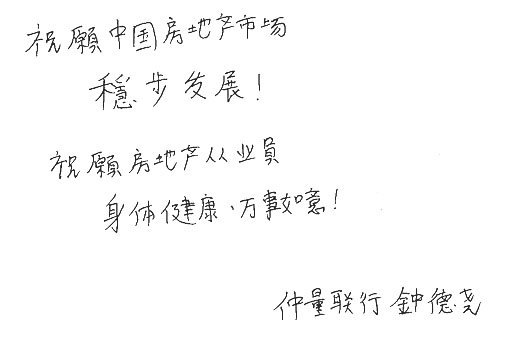 祝願中国房地产市场
穩步发展！
祝願房地产从业員
身体健康、万事如意！
仲量联行 鈡德尧